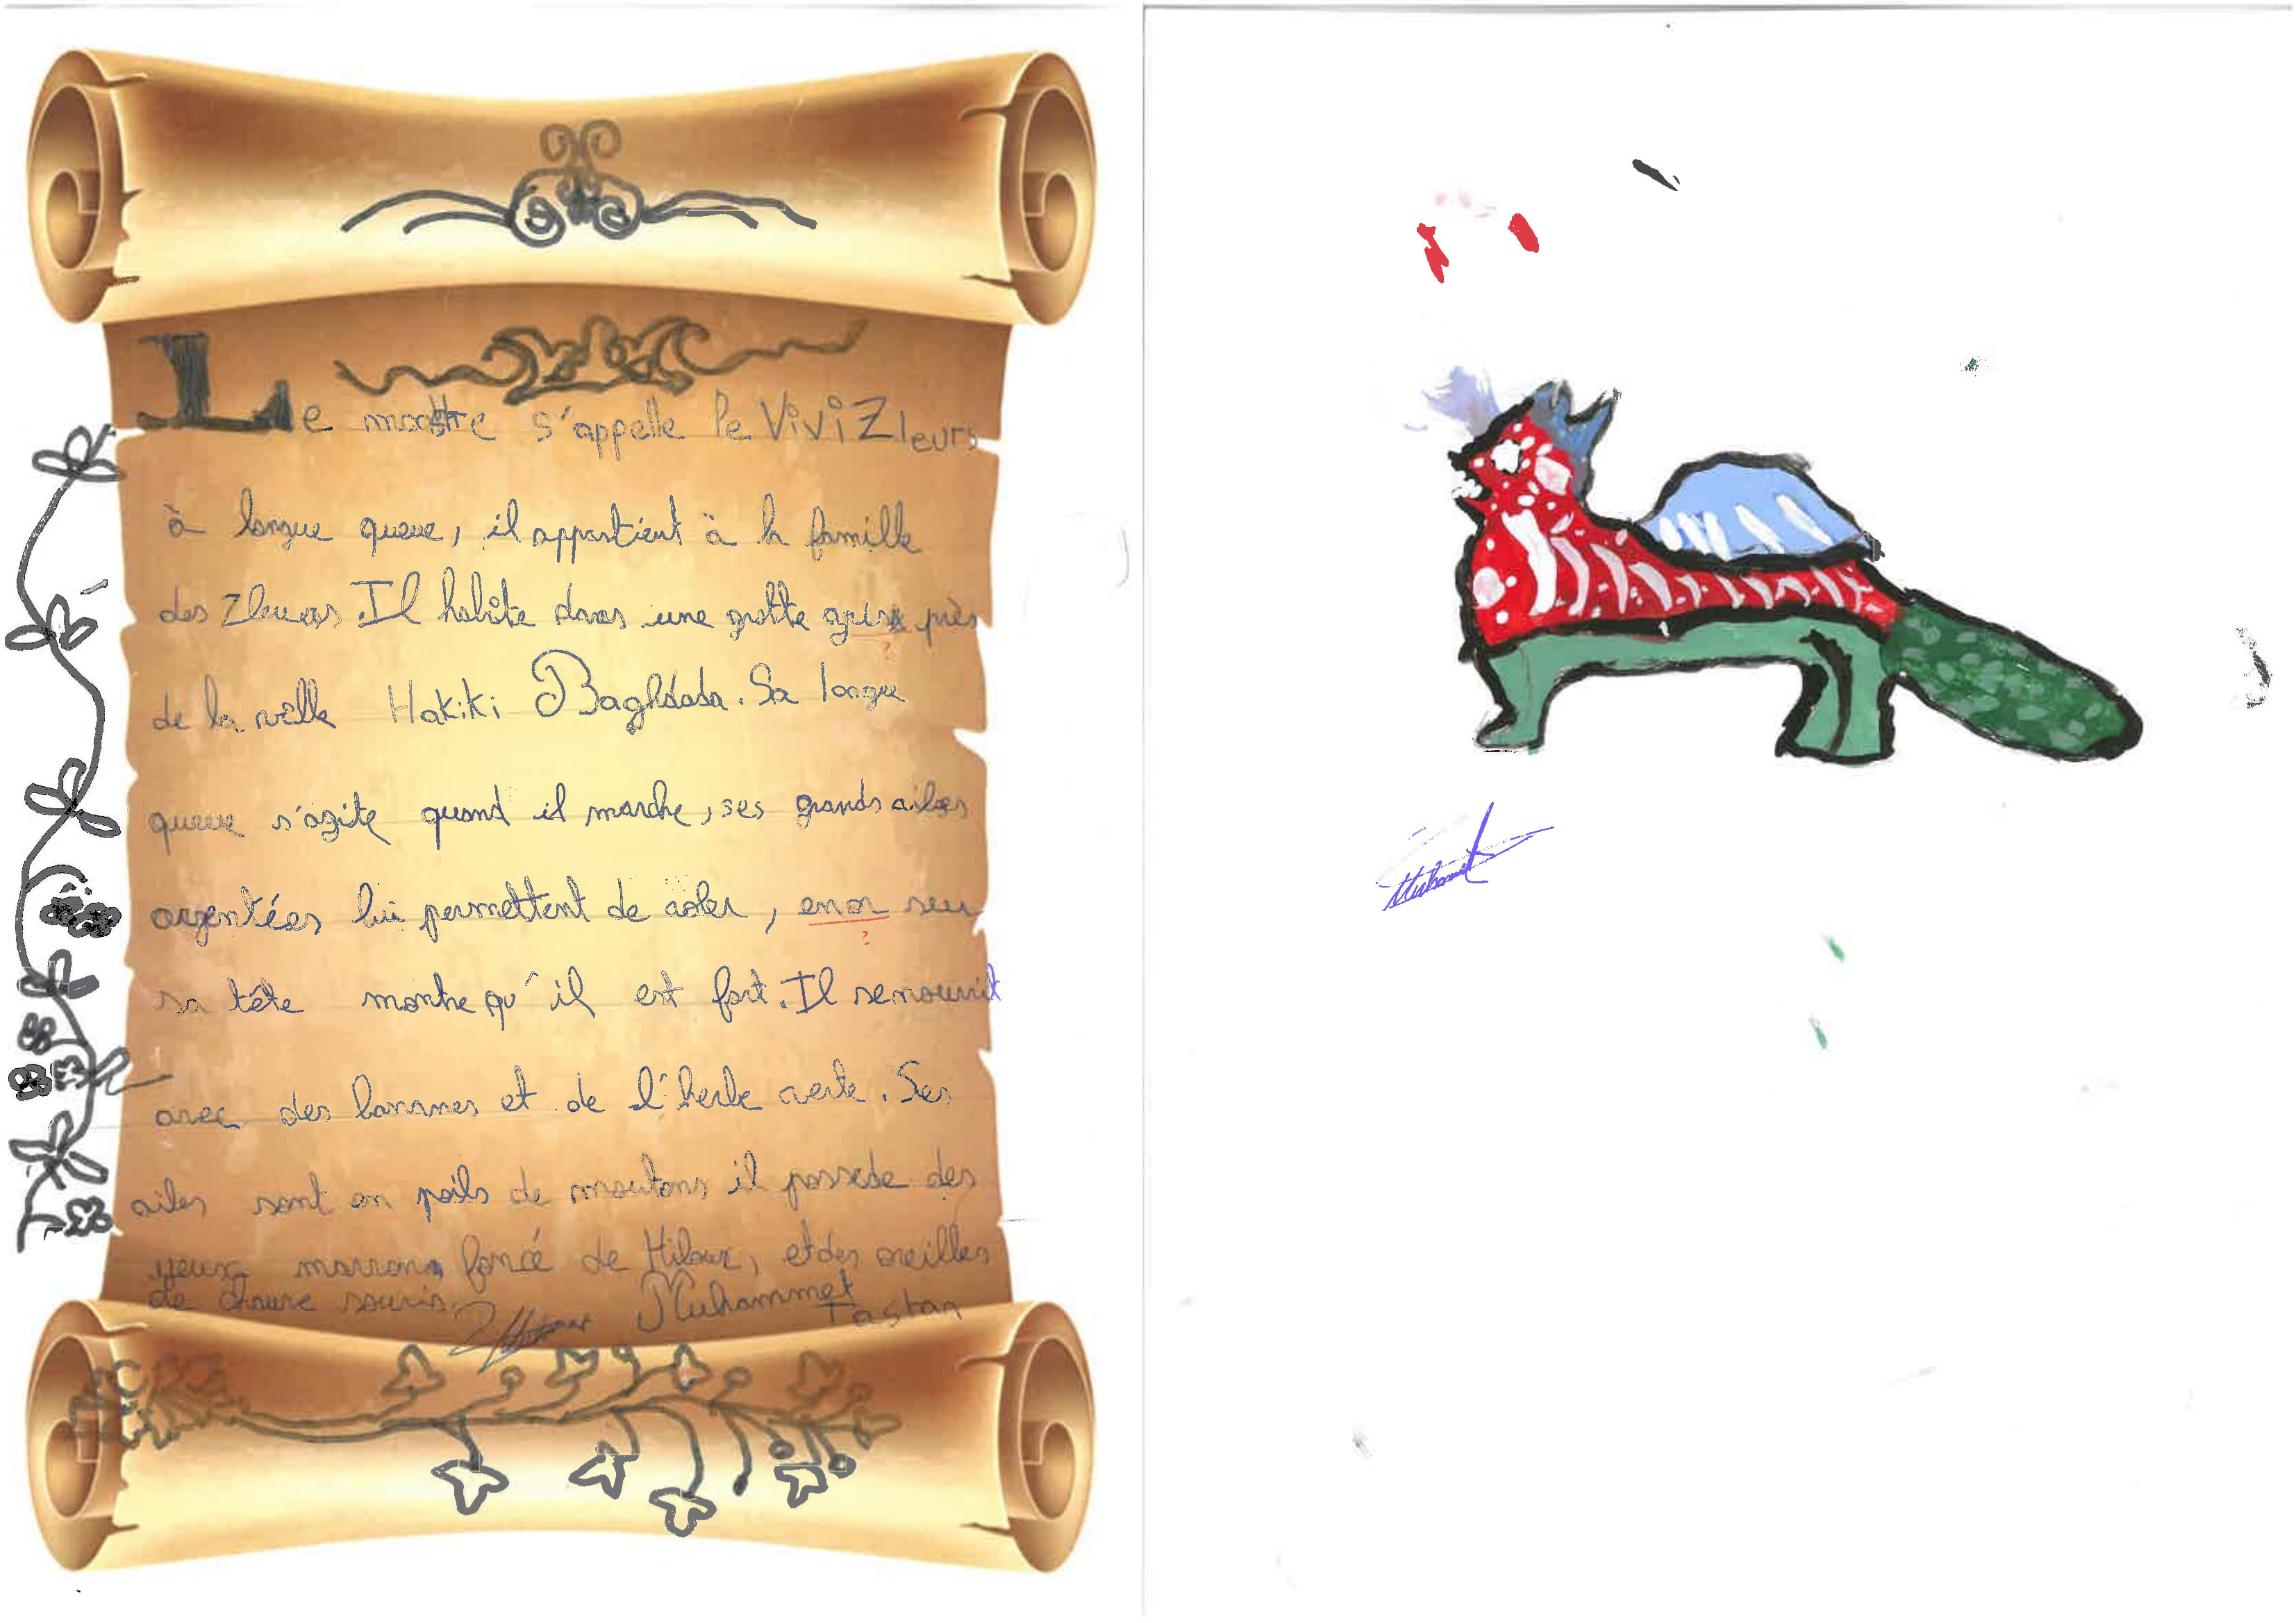 Le monstre s'appelle le ViViZleurs
à longue queue, il appartient à la famille
des Zleurs. Il habite dans une grotte grise près
de la ville Hakiki Baghdada. Sa longue
queue s'agite quand il marche, ses grands ailes
argentées lui permettent de voler, enor seur
sa tête montre qu'il est fort. Il se nourrit
avec des bananes et de l'herbe verte. Ses
ailes sont en poils de moutons il possede des
yeux marrons foncé de Hiboux, et des oreilles
de chauve souris.
Muhammet
Tastan